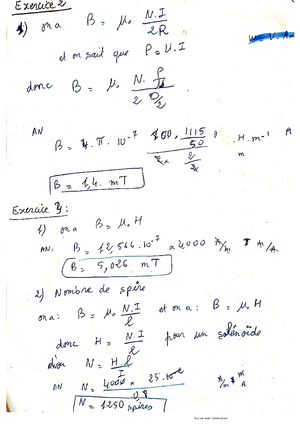 Exercice 2
1) on a B = μ₀ N.I / 2R
et on sait que P = U.I
donc B = μ₀ N. P/U / 2 D/2
AN
B = 4.π.10⁻⁷ 100. 1115/50 / 2x . H.m⁻¹ A / m
B = 1,4. mT
Exercice 3:
1) on a B = μ₀ H
AN: B = 12,566.10⁻⁷ x 4000
B = 5,026. mT
2) Nombre de spire
on a: B = μ₀ N.I / l et on a: B = μ₀ H
donc H = N.I / l pour un solénoïde
N = H.l / I
AN N = 4000 x 25. / 0,8
N = 1250 spires